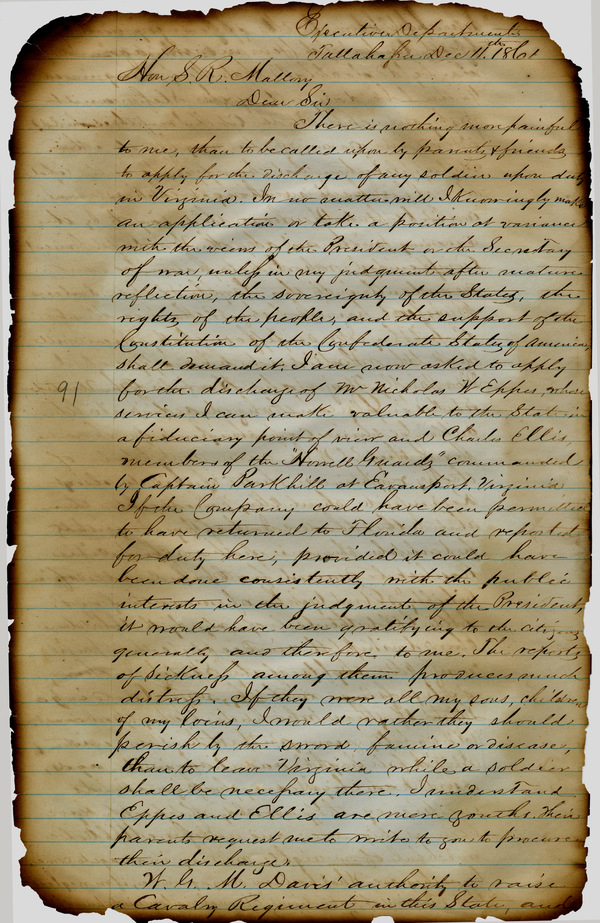 Executive Department
Tallahassee Dec 11th 1861
Hon S. R. Mallory
Dear Sir
There is nothing more painful
to me, than to be called upon by parents & friends
to apply for the discharge of any soldier upon duty
in Virginia. In no matter will I knowingly make
an application or take a position at variance
with the views of the President or the Secretary
of war, unless in my judgment after mature
reflection, the sovereignty of the States, the
rights of the people, and the support of the
Constitution of the Confederate States of America,
shall demand it. I am now asked to apply
for the discharge of Mr Nicholas W Eppes, whose
91
services I can make valuable to the State in
a fiduciary point of view and Charles Ellis,
members of the "Howell Guards" commanded
by Captain Parkhill at Evansport, Virginia
If the Company could have been permitted
to have returned to Florida and reported
for duty here, provided it could have
been done consistently with the public
interests in the judgment of the President,
it would have been gratifying to the citizens
generally and therefore, to me. The reports
of sickness among them produces much
distress. If they were all my sons, children
of my loins, I would rather they should
perish by the sword, famine or disease,
than to leave Virginia while a soldier
shall be necessary there. I understand
Eppes and Ellis are mere youths. Their
parents request me to write to you to procure
their discharge.
W. G. M. Davis' authority to raise
a Cavalry Regiment in this State, and